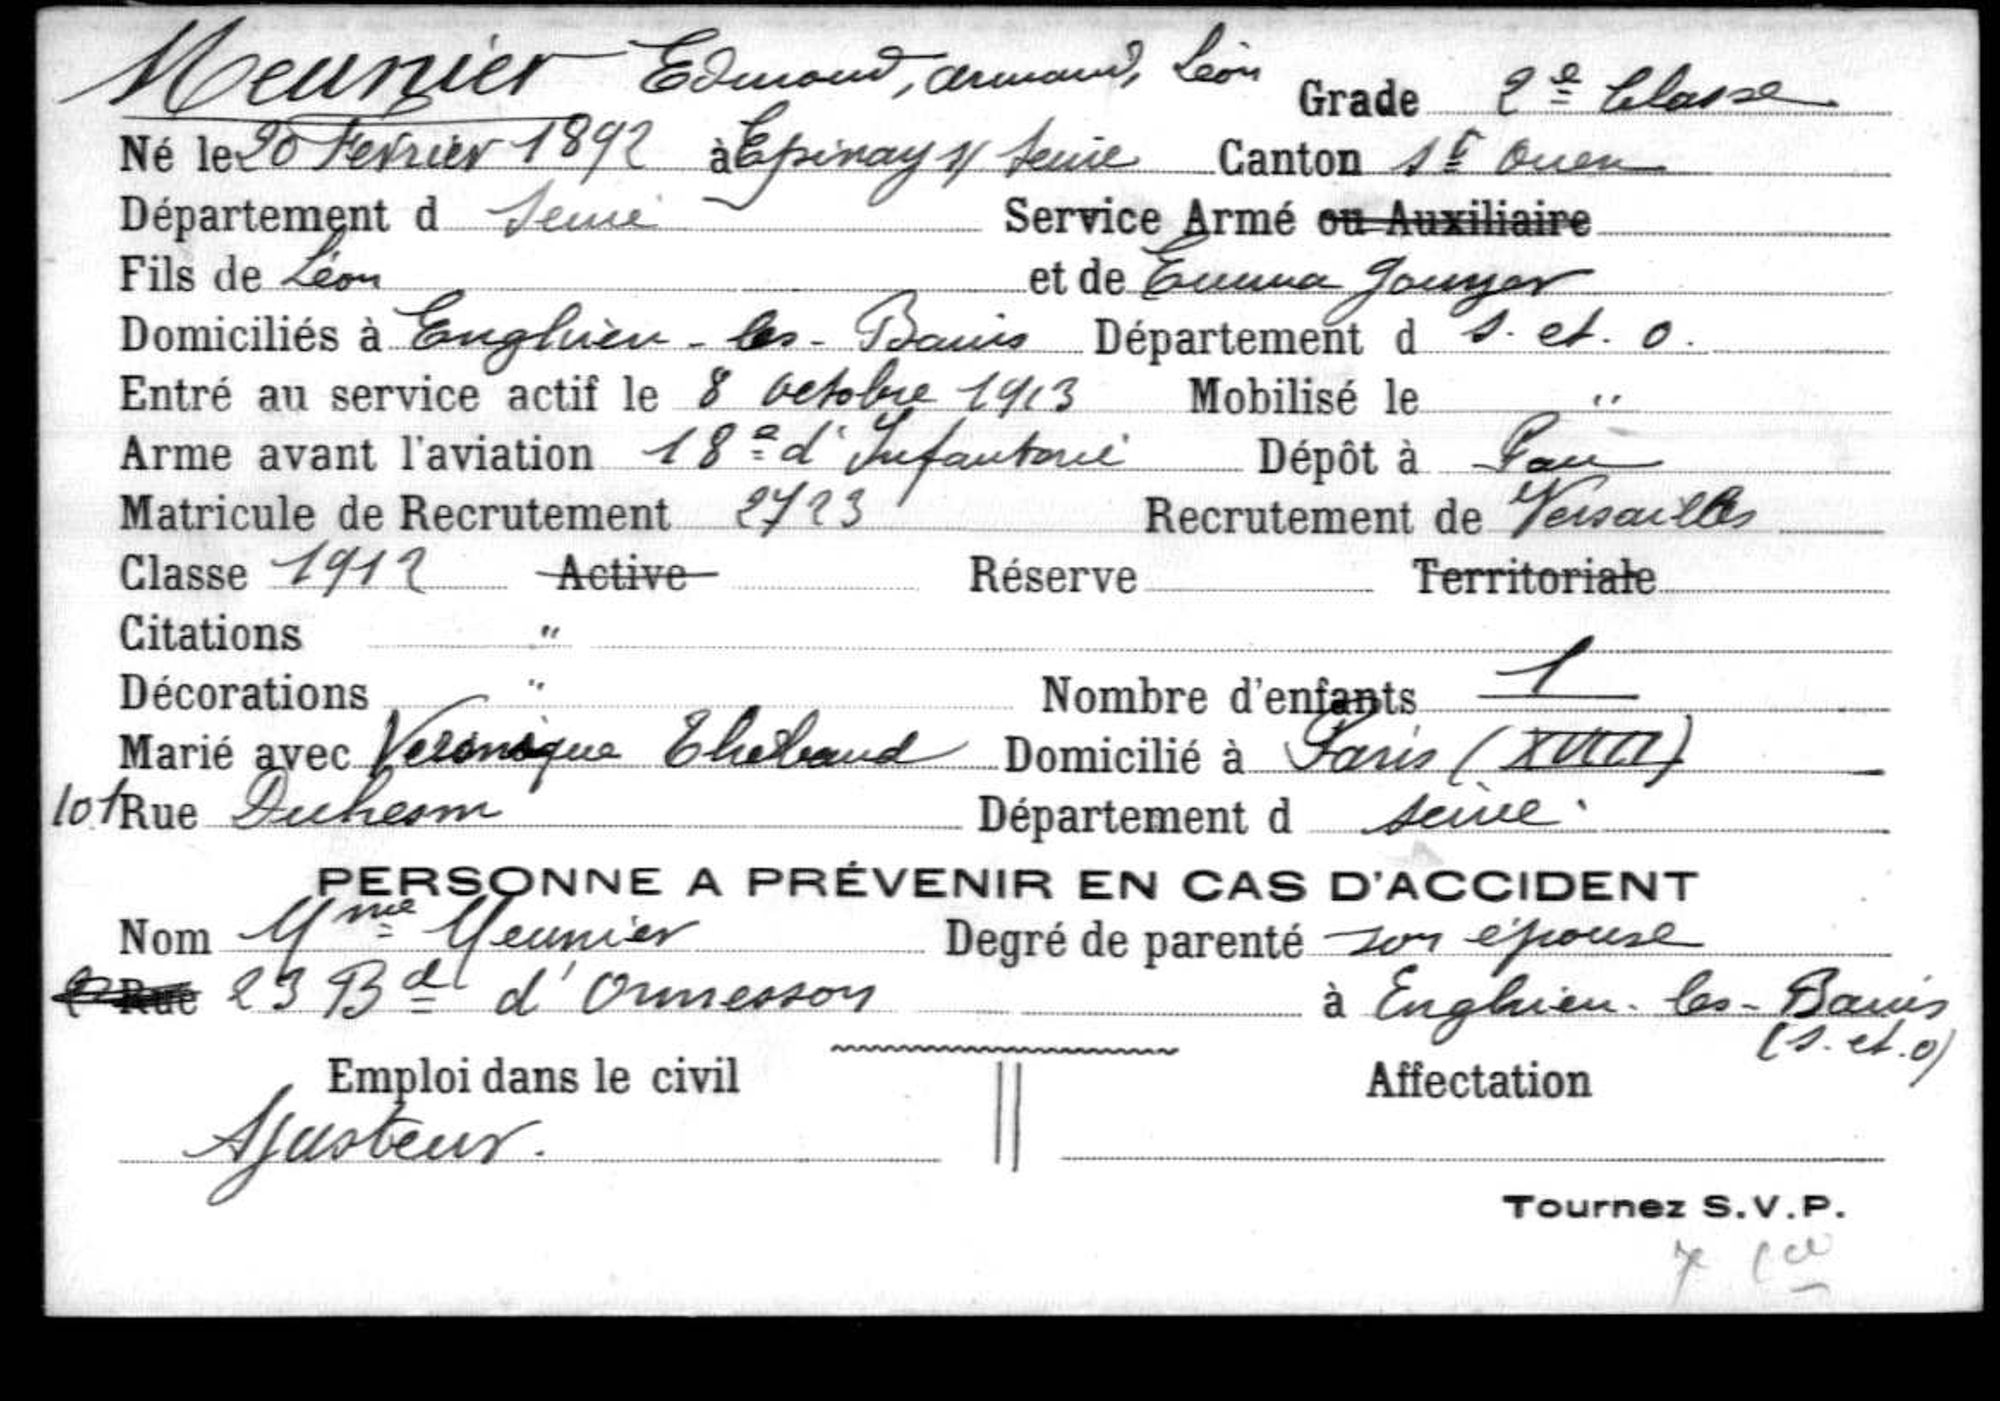 Meunier Edmond, Armand, Léon Grade 2e Classe
Né le 20 Fevrier 1892 à Epinay s/ Seine Canton St Ouen
Département d Seine Service Armé ou Auxiliaire
Fils de Léon et de Emma
Domiciliés à Enghien-les-Bains Département d S. et. O.
Entré au service actif le 8 octobre 1913 Mobilisé le "
Arme avant l'aviation 18e d'Infanterie Dépôt à Pau
Matricule de Recrutement 2723 Recrutement de Versailles
Classe 1912 Active Réserve Territoriale
Citations "
Décorations " Nombre d'enfants 1
Marié avec Veronique Thebaud Domicilié à Paris (XVIII)
101 Rue Duhesm Département d Seine
PERSONNE A PRÉVENIR EN CAS D'ACCIDENT
Nom Mme Meunier Degré de parenté son épouse
Rue 23 Bd d'Ormesson à Enghien-les-Bains
(S. et. O)
Emploi dans le civil Affectation
Ajusteur.
Tournez S.V.P.